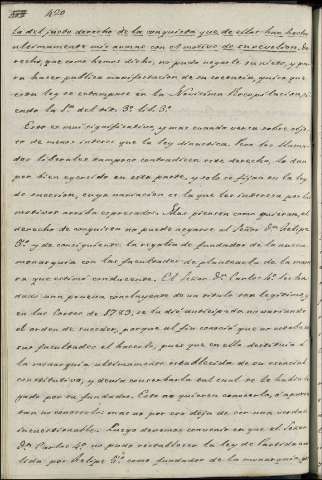 420
la del justo derecho de la conquista que de ellas han hecho
ultimamente mis armas con el motivo de su rebelion. De-
recho, que como hemos dicho, no pudo negarle su nieto, y pa-
ra hacer publica manifestacion de su creencia, quiso que
esta ley se estampase en la Novisima Recopilacion,
cendo la 1ª del tit. 3º lib. 3º
Esto es mui significativo, y mas cuando versa sobre obje-
to de menos interes que la ley dinastica. Pero los llama-
dos liberales tampoco contradicen este derecho, lo dan
por bien ejercido en esta parte, y solo se fijan en la ley
de sucesion, cuya variacion es la que les interesa por los
motivos arriba espresados. Mas piensen como quieran, el
derecho de conquista no puede negarse al Señor Dn. Felipe
5º y de consiguiente la regalia de fundador de la nueva
monarquia con las facultades de plantearla de la mane-
ra que estimó conducente. El Señor Dn. Carlos 4º les ha
dado una prueba concluyente de un titulo tan legitimo,
en las Cortes de 1789, se la dió anticipada no variando
el orden de suceder, porque al fin conoció que no estaba en
sus facultades el hacerlo, pues que en ello destituia á
la monarquia ultimamente establecida de su esencial
constitutivo, y devia conservarla tal cual se le habia le-
gado por su fundador. Estos no quieren conocerlo, ó aparen-
tan no conocerlo: mas no por eso deja de ser una verdad
incuestionable. Luego devemos convenir en que el Señor
Dn. Carlos 4º no pudo restablecer la ley de Partida anu-
lada por Felipe 5º como fundador de la monarquia,